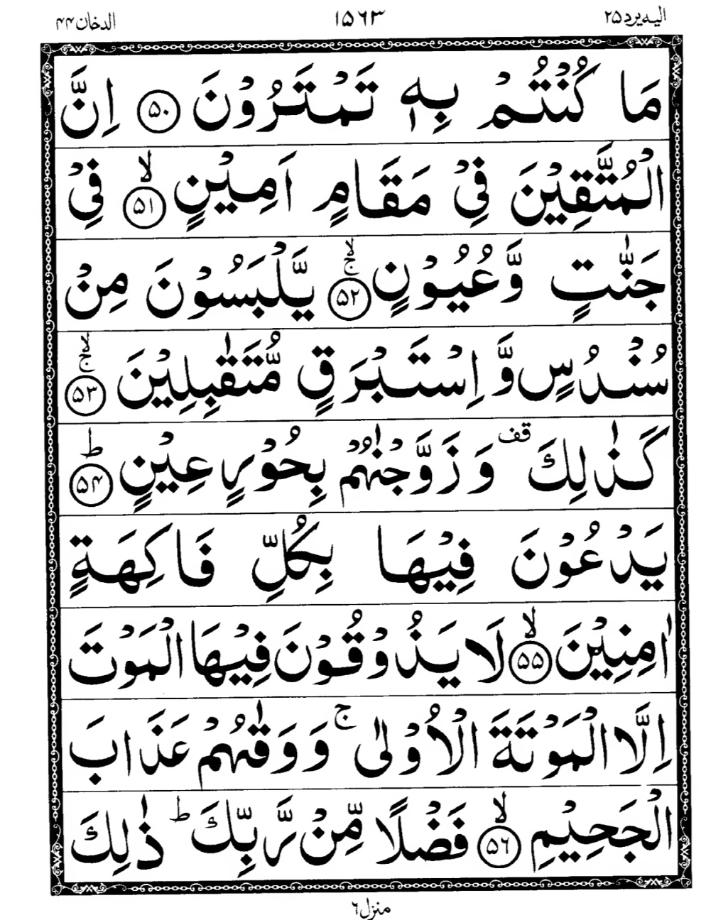 الیه یرد ۲۵ ۱۵۶۳ الدخان ۴۴
مَا كُنْتُمْ بِهٖ تَمْتَرُوْنَ ۝۵۰ اِنَّ
الْمُتَّقِيْنَ فِيْ مَقَامٍ اَمِيْنٍ ۝۵۱ۙ فِيْ
جَنّٰتٍ وَّعُيُوْنٍ ۝۵۲ۚۙ يَّلْبَسُوْنَ مِنْ
سُنْدُسٍ وَّاِسْتَبْرَقٍ مُّتَقٰبِلِيْنَ ۝۵۳ۚۙ
كَذٰلِكَ قف وَزَوَّجْنٰهُمْ بِحُوْرٍ عِيْنٍ ۝۵۴ؕ
يَدْعُوْنَ فِيْهَا بِكُلِّ فَاكِهَةٍ
اٰمِنِيْنَ ۝۵۵ۙ لَا يَذُوْقُوْنَ فِيْهَا الْمَوْتَ
اِلَّا الْمَوْتَةَ الْاُوْلٰى ۚ وَوَقٰىهُمْ عَذَابَ
الْجَحِيْمِ ۝۵۶ۙ فَضْلًا مِّنْ رَّبِّكَ ؕ ذٰلِكَ
منزل ۶